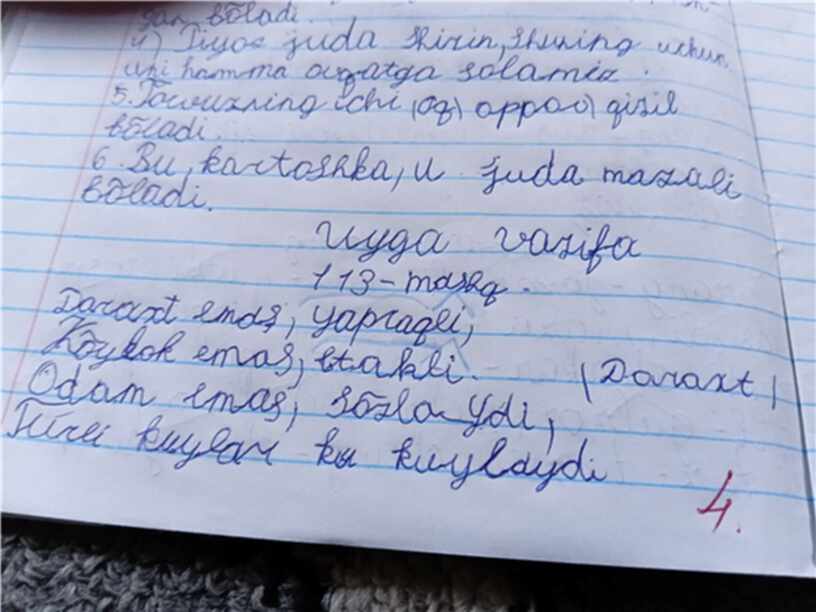 bõladi.
4) Piyoz juda shirin, shuning uchun
uni hamma ovqatga solamiz.
5. Tarvuzning ichi (oq) oppoq) qizil
bõladi.
6. Bu, kartoshka, u juda mazali
bõladi.
Uyga vazifa
113-mashq.
Daraxt emas, yapraqli,
Kõylok emas, etakli. (Daraxt)
Odam emas, sõzlaydi,
Turli kuylar ku kuylaydi
4.